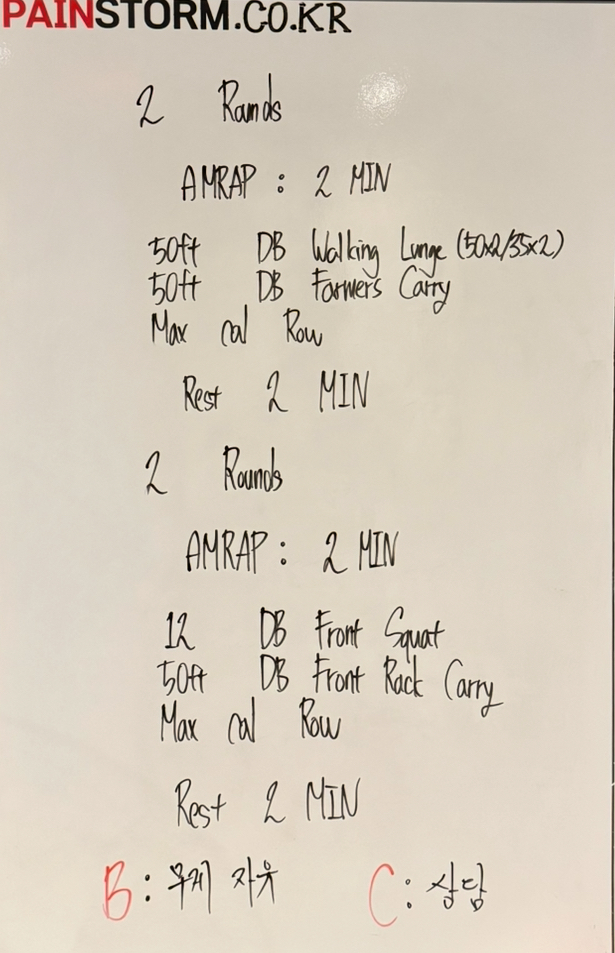 PAINSTORM.CO.KR
2 Rounds
AMRAP : 2 MIN
50ft DB Walking Lunge (50x2/35x2)
50ft DB Farmers Carry
Max cal Row
Rest 2 MIN
2 Rounds
AMRAP : 2 MIN
12 DB Front Squat
50ft DB Front Rack Carry
Max cal Row
Rest 2 MIN
B : 무게 자유 C : 상담